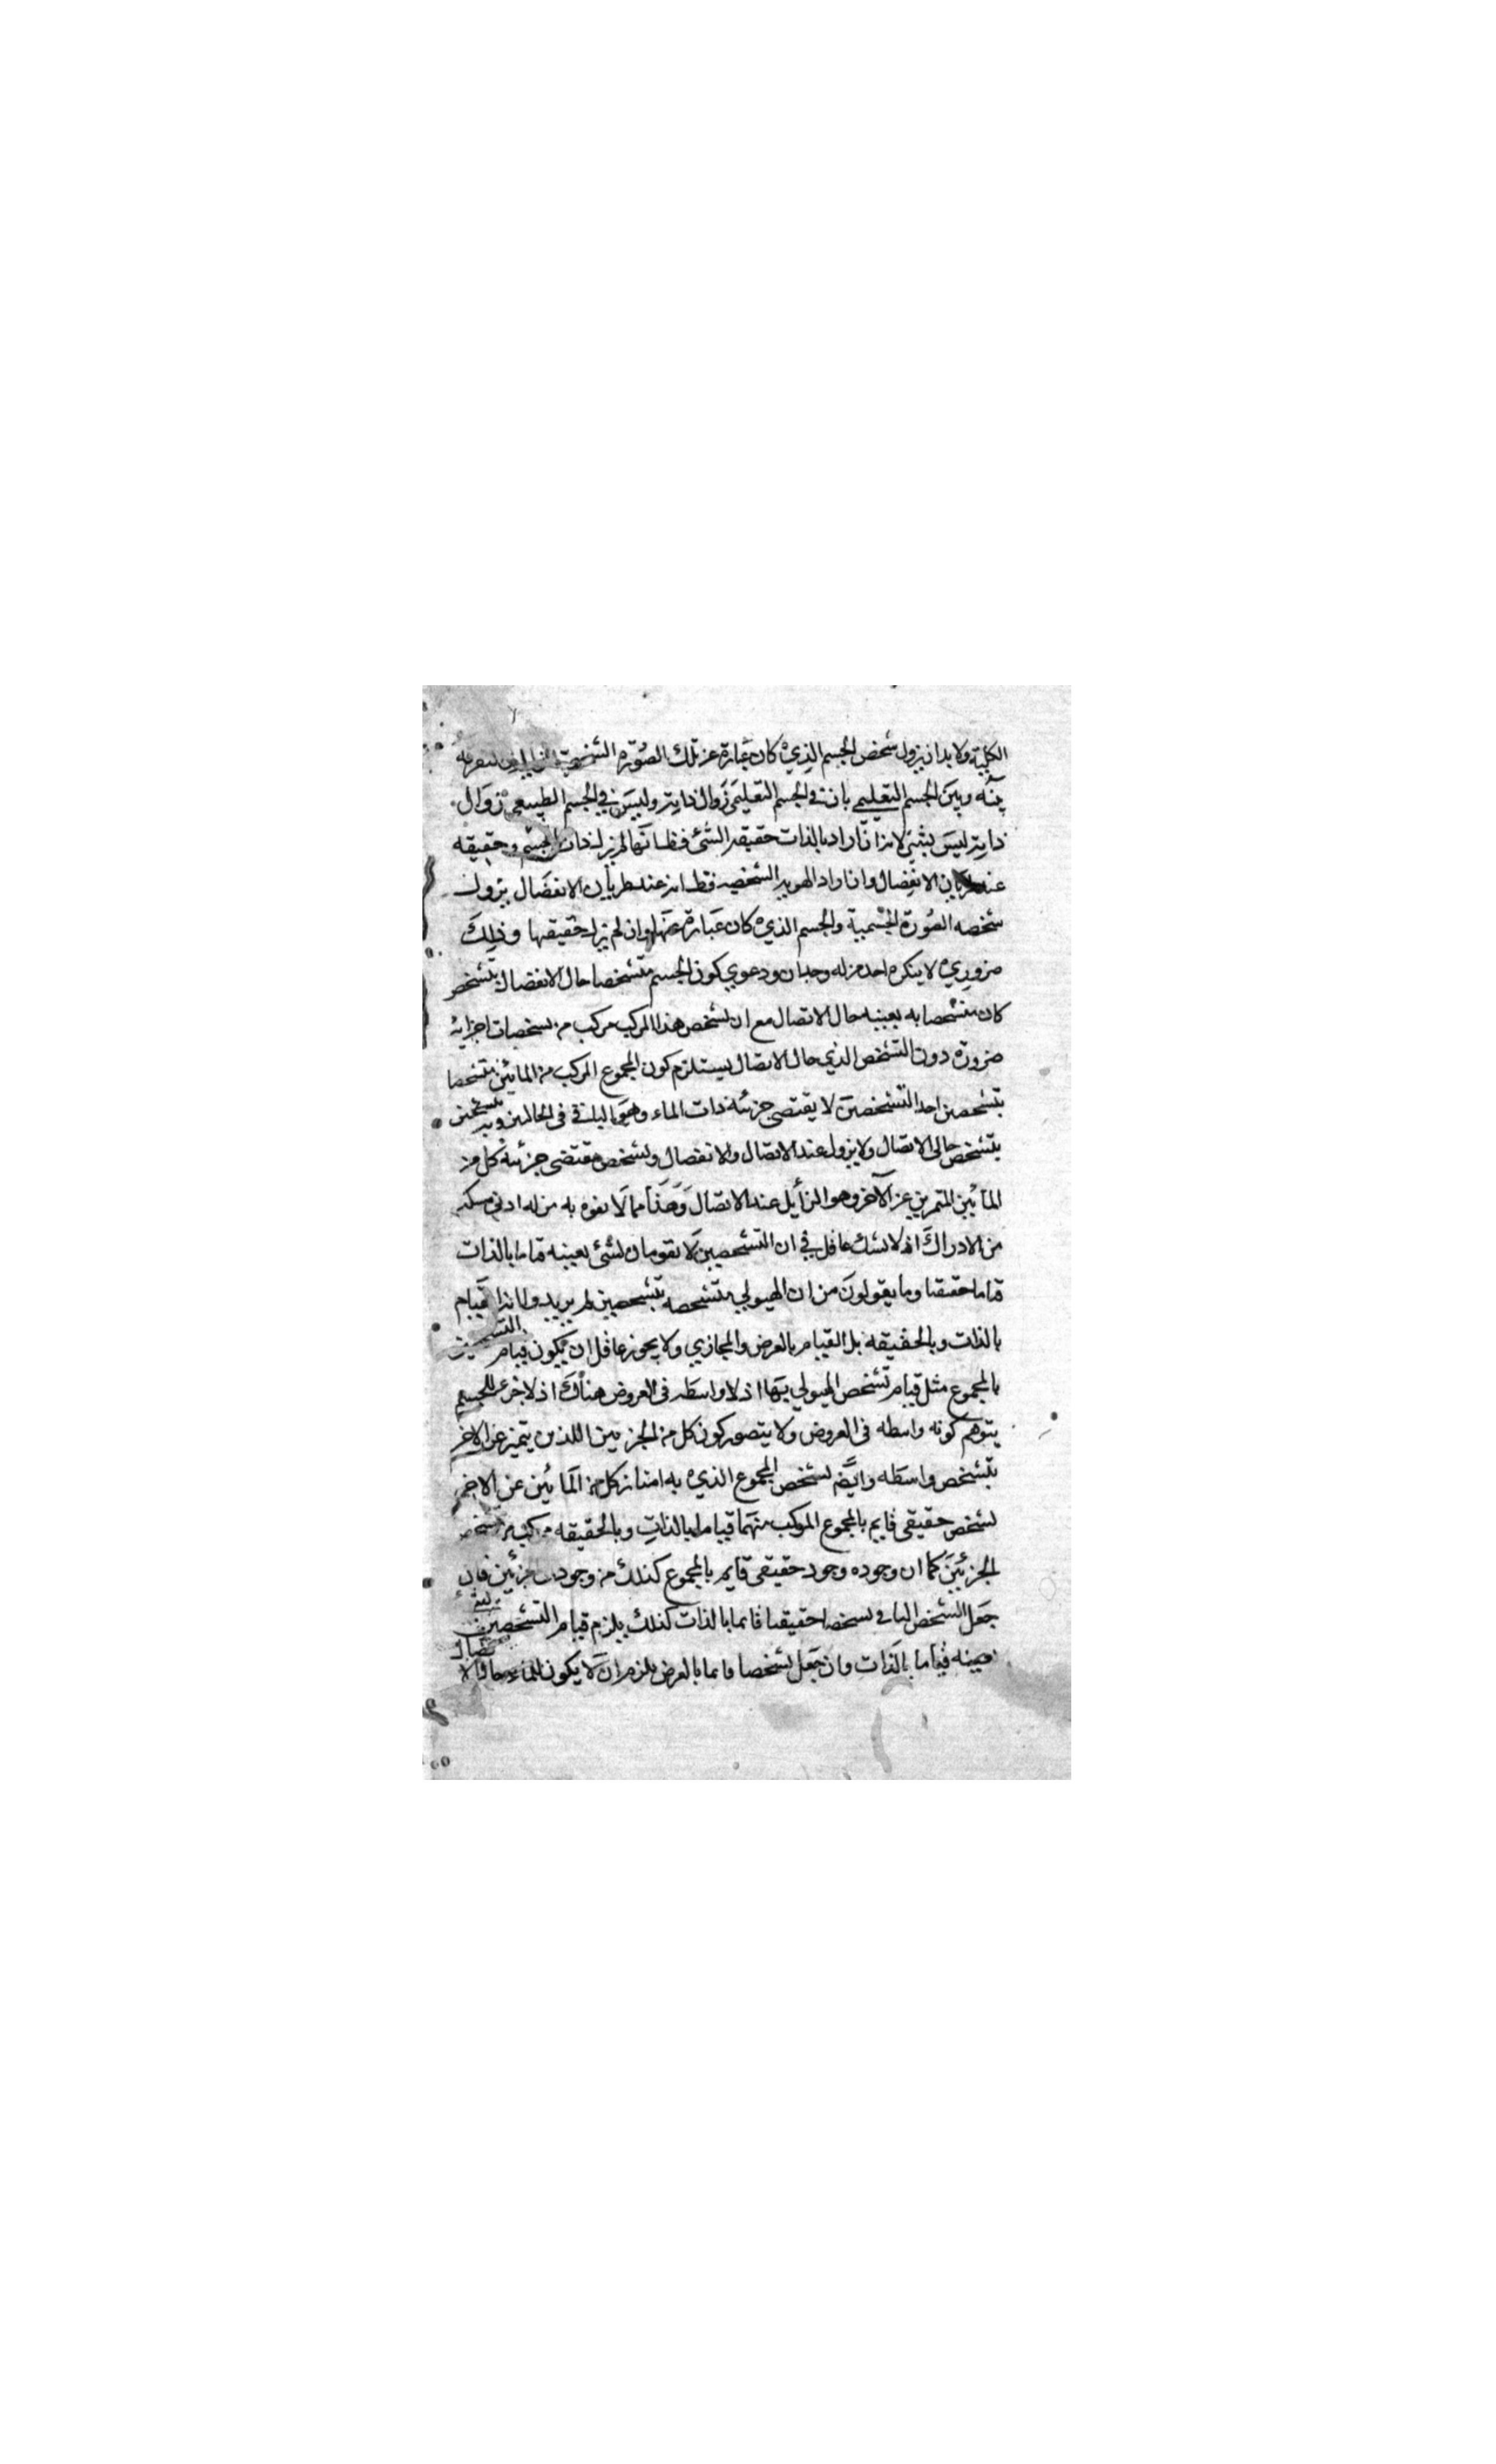 الكلية ولا بد ان يزول شخص الجسم الذي كان عبارة عن تلك الصورة الشخصية
بينه وبين الجسم التعليمي بان في الجسم التعليمي زوال ذاته وليس في الجسم الطبيعي زوال
ذاته ليس بشئ لانه ان اراد بالذات حقيقة الشئ فظ انها لم يزل ذات الجسم وحقيقه
عند طريان الانفصال وان اراد الهوية الشخصيه فظ انه عند طريان الانفصال يزول
شخصه الصورة الجسمية والجسم الذي كان عبارة عنها وان لم يزل حقيقتها وذلك
ضروري لا ينكره احد من له وجدان ودعوي كون الجسم متشخصا حال الانفصال بتشخص
كان متشخصا به بعينه حال الاتصال مع ان تشخص هذا المركب مركب من تشخصات اجزائه
ضرورة دون التشخص الذي حال الاتصال يستلزم كون المجموع المركب من المائين متشخصا
بتشخصين احد التشخصين لا يقتضي جزئية ذات الماء وهو الباقي في الحالين
بتشخص حالي الاتصال ولا يزول عند الاتصال والانفصال وتشخص مقتضى جزئية كل من
المائين المتميزين عن الآخر وهو الزايل عند الاتصال وهذا مما لا يفوه به من له ادنى مسكة
من الادراك اذ لا يشك عاقل في ان التشخصين لا يقومان بشئ بعينه قياما بالذات
قياما حقيقيا وما يقولون من ان الهيولي متشخصه بتشخصين لم يريدوا بذا القيام
بالذات وبالحقيقه بل القيام بالعرض والمجازي ولا يجوز عاقل ان يكون قيام التشخصين
بالمجموع مثل قيام تشخص الهيولي بها اذ لا واسطه في العروض هناك اذ لا جزء للجسم
يتوهم كونه واسطه في العروض ولا يتصور كون كل من الجزئين اللذين يتميز عن الاخر
بتشخص واسطه وايضا تشخص المجموع الذي به امتاز كل من المائين عن الاخر
تشخص حقيقي قايم بالمجموع المركب منهما قياما بالذات وبالحقيقه مركب من تشخص
الجزئين كما ان وجوده وجود حقيقي قايم بالمجموع كذلك من وجودات جزئين فان
جعل التشخص الباقي تشخصا حقيقيا قائما بالذات كذلك يلزم قيام التشخصين بشئ
بعينه قياما بالذات وان جعل تشخصا قائما بالعرض يلزم ان لا يكون للماء حال الاتصال